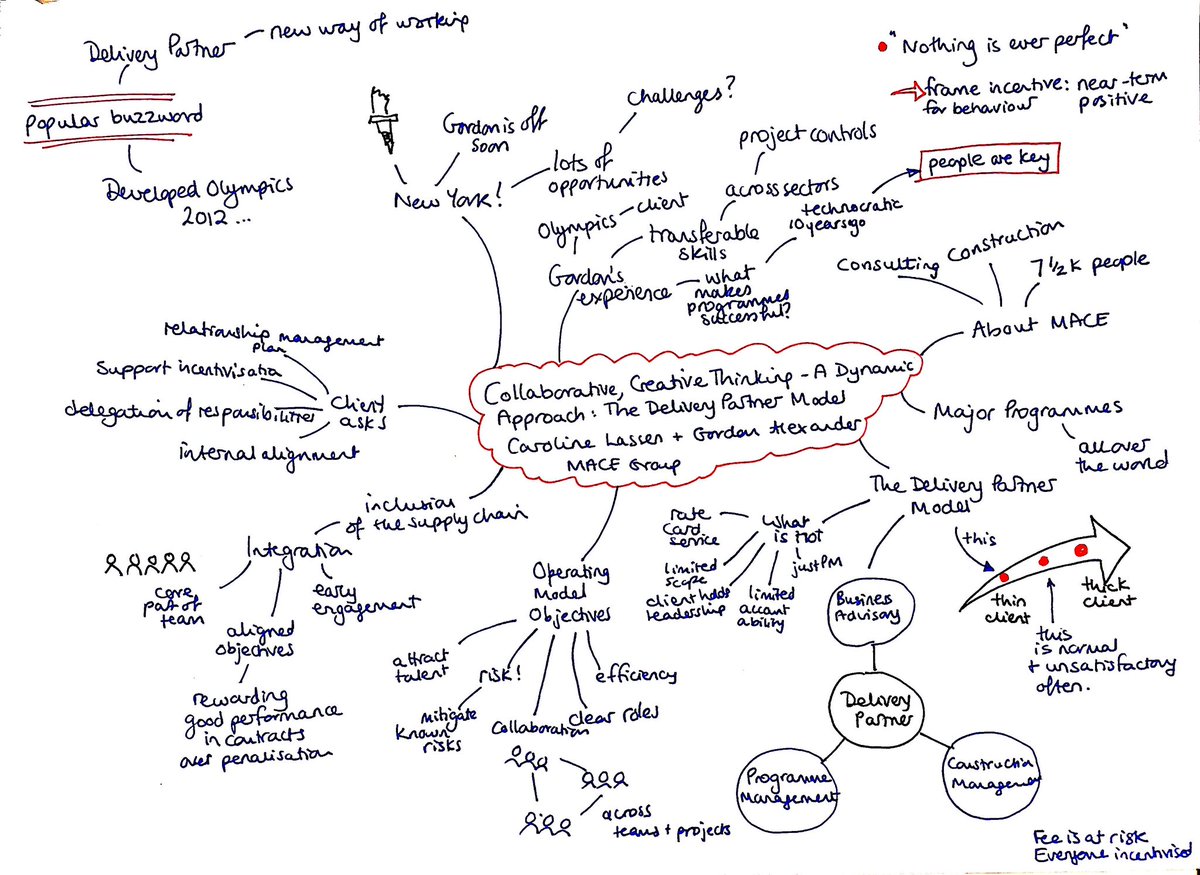 Delivery Partner
new way of working
Popular buzzword
Developed Olympics
2012 ...
New York!
Gordon is off
soon
lots of
opportunities
challenges?
"Nothing is ever perfect"
frame incentive: near-term
for behaviour positive
people are key
project controls
across sectors
technocratic
10 years ago
Olympics
client
transferable
skills
Gordon's
experience
what
makes
programmes
successful?
Consulting
Construction
7 1/2 k people
About MACE
Collaborative, Creative Thinking - A Dynamic
Approach: The Delivery Partner Model
Caroline Lassen + Gordon Alexander
MACE Group
Major Programmes
all over
the world
relationship management
plan
Support incentivisation
delegation of responsibilities
internal alignment
Client
asks
inclusion
of the supply chain
Integration
core
part of
team
early
engagement
aligned
objectives
rewarding
good performance
in contracts
over penalisation
Operating
Model
Objectives
attract
talent
risk!
mitigate
known
risks
Collaboration
clear roles
efficiency
across
teams + projects
The Delivery Partner
Model
What
is not
rate
card
service
limited
scope
client holds
leadership
limited
account
ability
just PM
this
thin
client
thick
client
this
is normal
+ unsatisfactory
often.
Business
Advisory
Delivery
Partner
Programme
Management
Construction
Management
Fee is at risk
Everyone incentivised